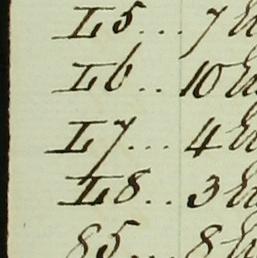 L5... 7
L6.. 10
L7... 4
L8.. 3
85... 8